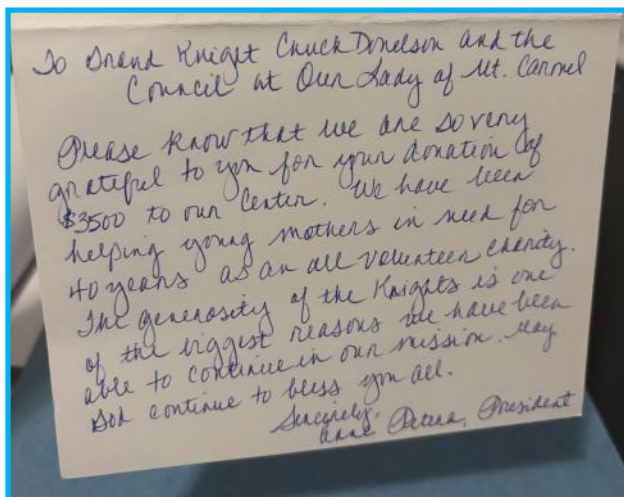 To Grand Knight Chuck Donelson and the
Council at Our Lady of Mt. Carmel
Please know that we are so very
grateful to you for your donation of
$3500 to our Center. We have been
helping young mothers in need for
40 years as an all volunteer charity.
The generosity of the Knights is one
of the biggest reasons we have been
able to continue in our mission. May
God continue to bless you all.
Sincerely,
Anne, President